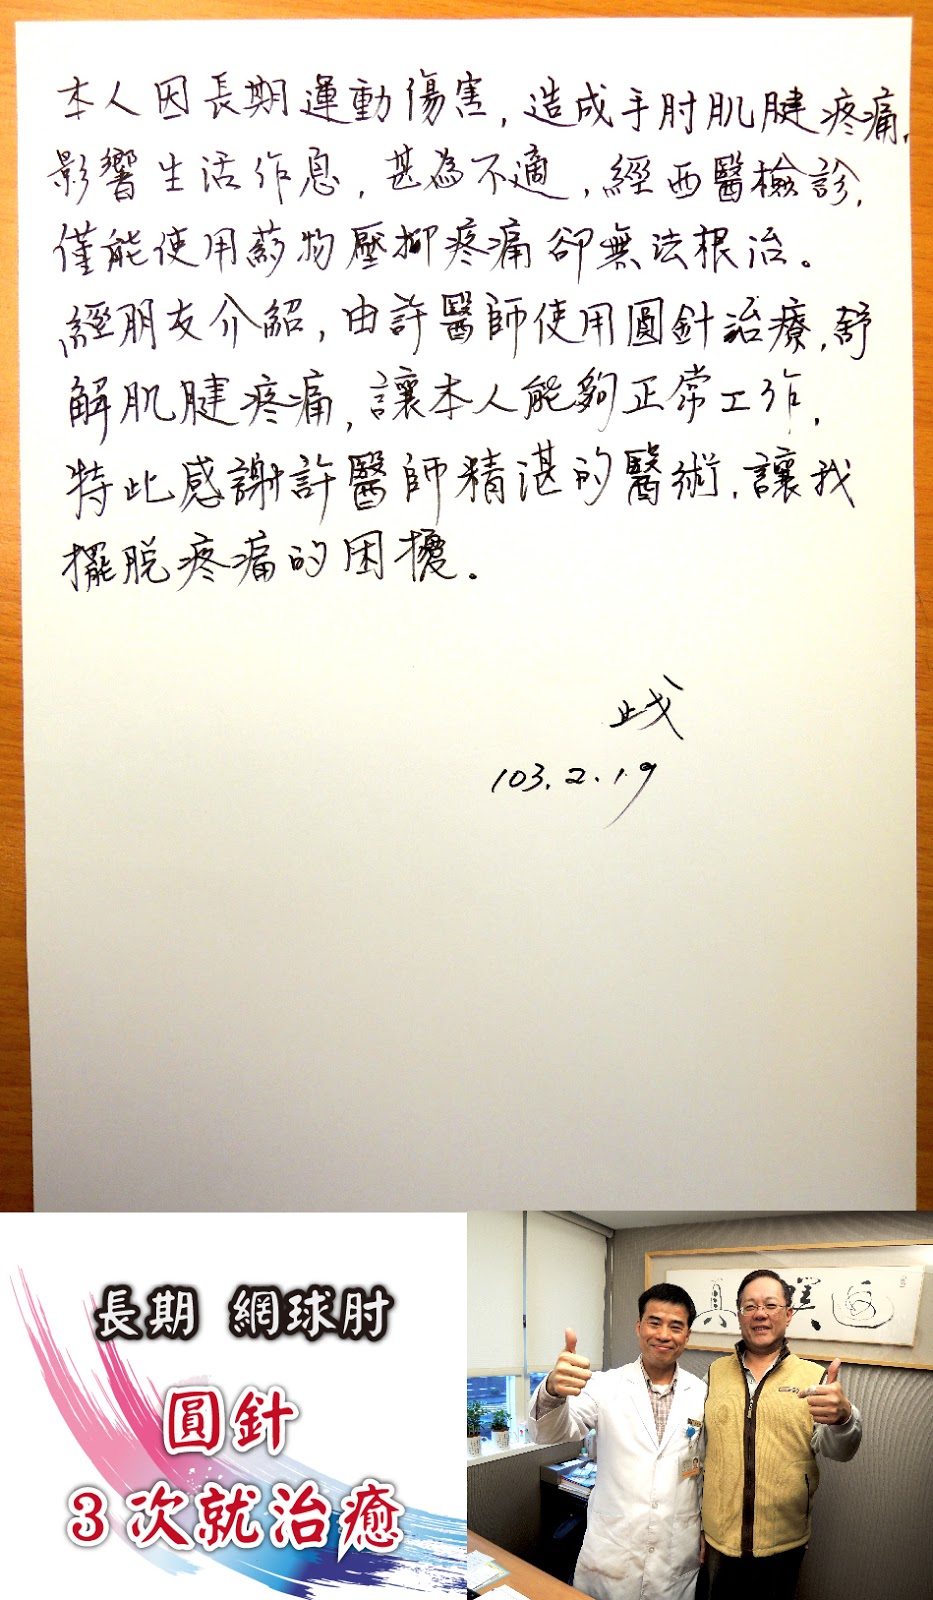 本人因長期運動傷害,造成手肘肌腱疼痛,
影響生活作息,甚為不適,經西醫檢診,
僅能使用藥物壓抑疼痛卻無法根治。
經朋友介紹,由許醫師使用圓針治療,舒
解肌腱疼痛,讓本人能夠正常工作,
特此感謝許醫師精湛的醫術,讓我
擺脫疼痛的困擾。
103.2.19
長期 網球肘
圓針
3次就治癒